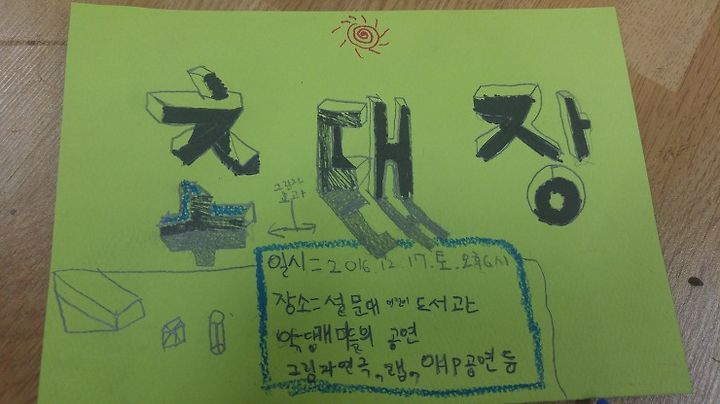 초대장
그림자
효과
일시= 2016.12.17.토.오후6시
장소= 설문대 어린이 도서관
악당개미들의 공연
그림자연극, 랩, OHP공연 등